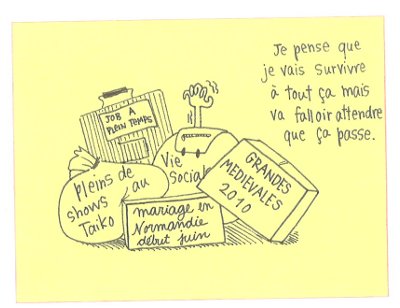 Je pense que
je vais survivre
à tout ça mais
va falloir attendre
que ça passe.
JOB À
PLEIN TEMPS
Vie
Sociale
Pleins de
shows au
Taiko
GRANDES
MEDIEVALES
2010
mariage en
Normandie
début juin